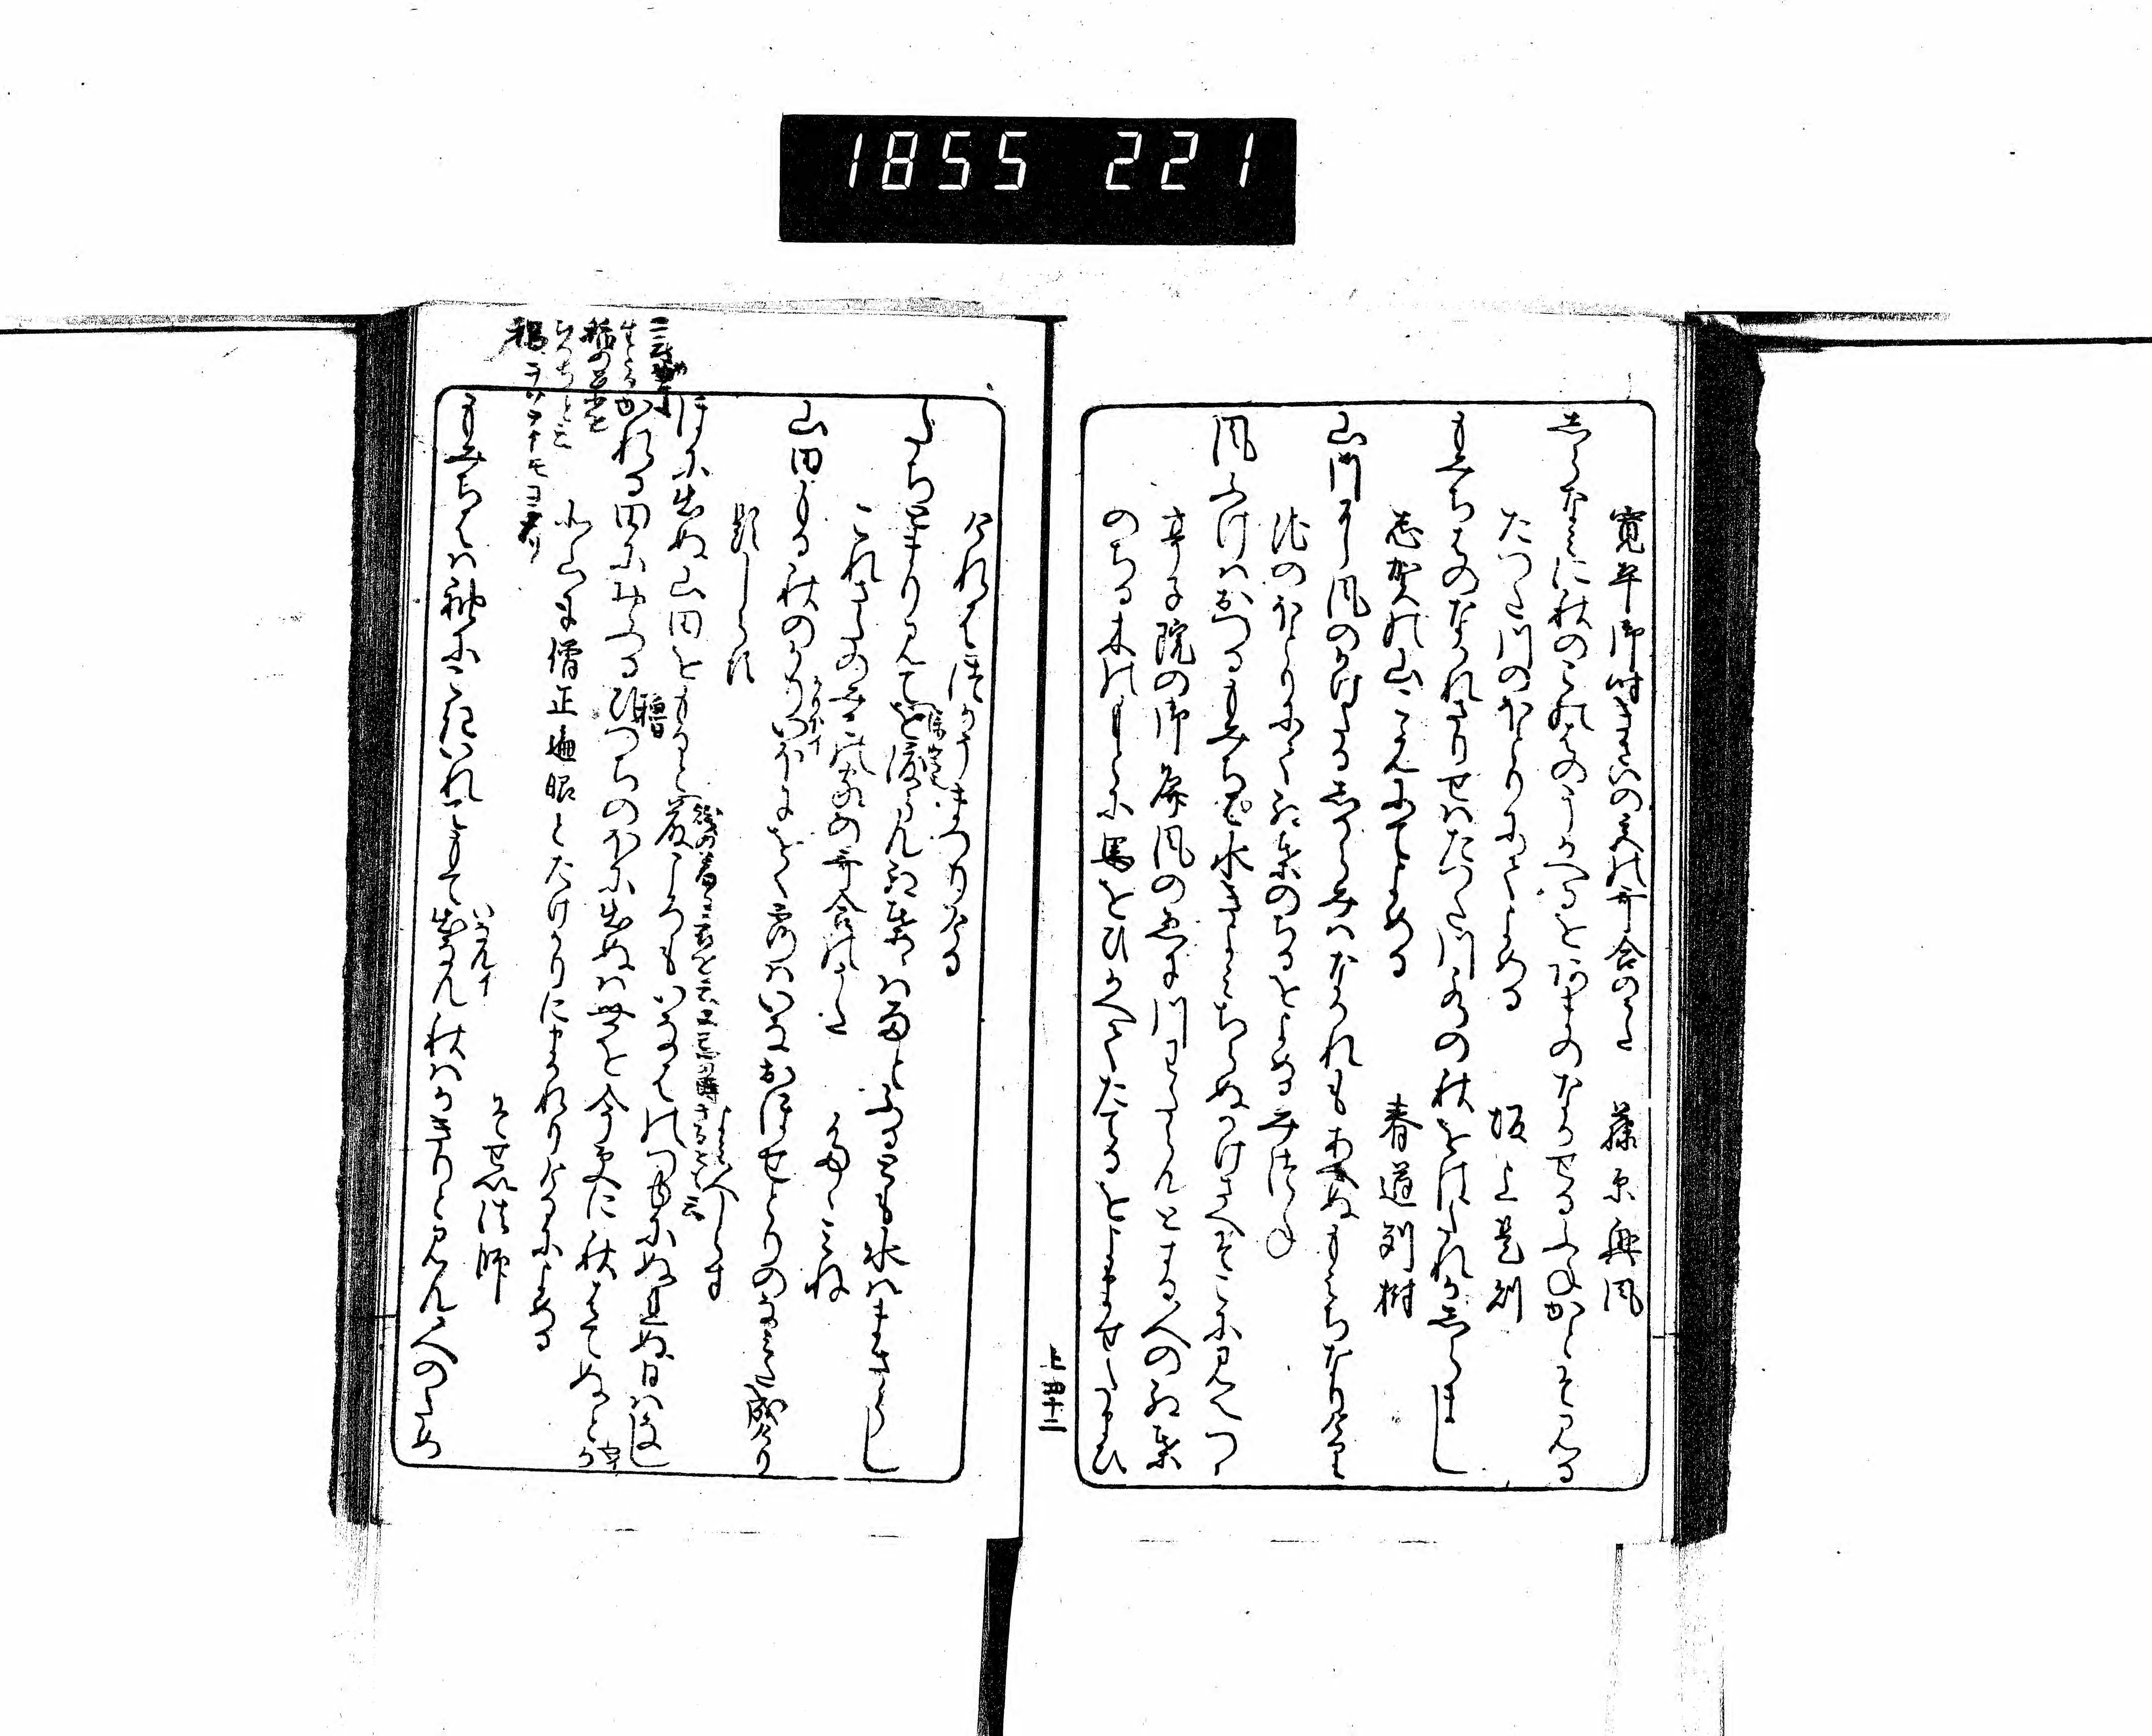 1855 221
寛平御時きさいの宮の哥合のうた 藤原興風
志らなみに秋のこのはのうかへるをあまのなかせる舟かとそ見る
たつた川のほとりにてよめる 坂上是則
もみちはのなかれさりせはたつた川水の秋をはたれかしらまし
志賀の山こえにてよめる 春道列樹
山川に風のかけたる志からみはなかれもあへぬもみちなりけり
池のほとりにて紅葉のちるをよめる みつね
風ふけはおつるもみちは水きよみちらぬかけさへそこに見えつゝ
亭子院の御屏風のゑに川わたらんとする人の紅葉
のちる木のもとに馬をひかへてたてるをよませたまひ
上 四十二
けれはつかうまつりける
たちとまり見てを渡らん紅葉はは雨とふるとも水はまさらし
これさたのみこの家の哥合のうた たゝみね
山田もる秋のかりいほにをく露はいなおほせとりのなみた成けり
題しらす よみ人しらす
ほに出ぬ山田をもると藤ころもいなはの露にぬれぬ日はなし
かれる田におふるひつちのほに出ぬは世を今更に秋はてぬとか
北山に僧正遍昭とたけかりにまかれりけるによめる
そせい法師
もみちはは袖にこきいれてもて出なん秋はかきりと見ん人のため